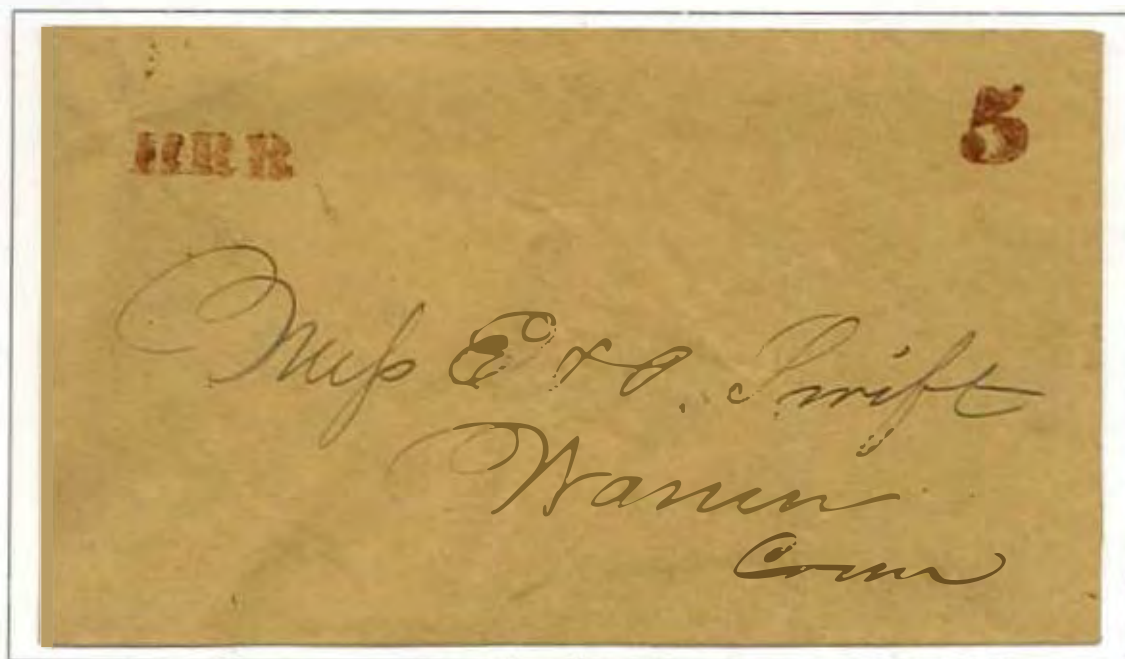 HRR
5
Miss E Swift
Warren
Conn